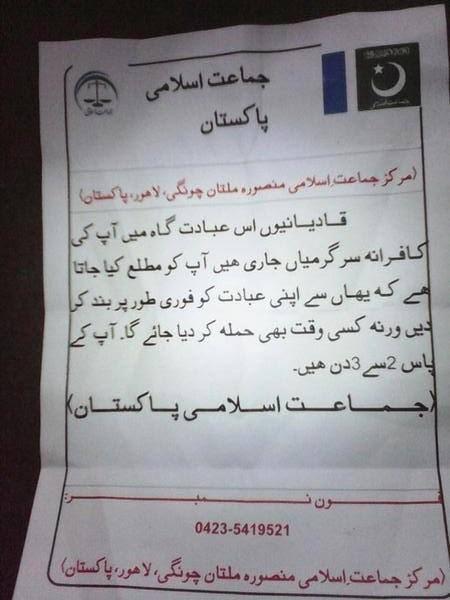 جماعت اسلامی
پاکستان
(مرکز جماعت اسلامی منصورہ ملتان چونگی، لاہور، پاکستان)
قادیانیوں اس عبادت گاہ میں آپ کی
کافرانہ سرگرمیاں جاری ھیں آپ کو مطلع کیا جاتا
ھے کہ یہاں سے اپنی عبادت کو فوری طور پر بند کر
دیں ورنہ کسی وقت بھی حملہ کر دیا جائے گا۔ آپ کے
پاس 2سے 3دن ھیں۔
(جماعت اسلامی پاکستان)
فون نمبر:
0423-5419521
(مرکز جماعت اسلامی منصورہ ملتان چونگی، لاہور، پاکستان)